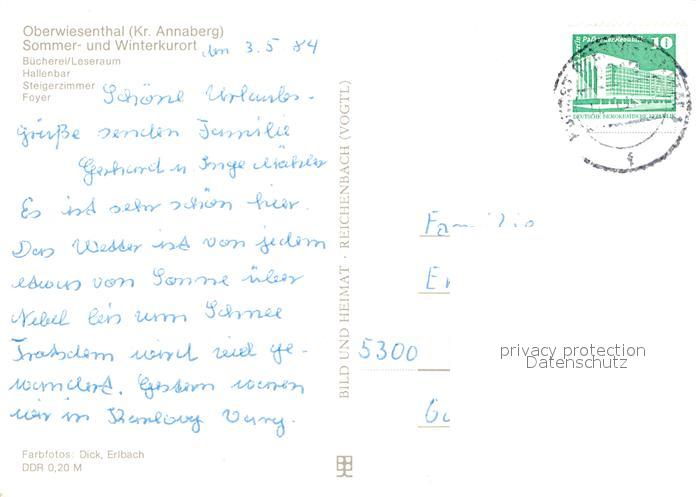 Oberwiesenthal (Kr. Annaberg)
Sommer- und Winterkurort
Bücherei/Leseraum
Hallenbar
Steigerzimmer
Foyer
den 3.5 84
Schöne Urlaubs-
grüße senden Familie
Gerhard u Inge
Es ist sehr schön hier.
Das Wetter ist von jedem
etwas von Sonne über
Nebel bis zum Schnee
Trotzdem wird viel ge-
wandert. Gestern waren
wir in Karlovy Vary.
Farbfotos: Dick, Erlbach
DDR 0,20 M
BILD UND HEIMAT · REICHENBACH (VOGTL)
10
DEUTSCHE DEMOKRATISCHE REPUBLIK
Familie
5300
privacy protection
Datenschutz